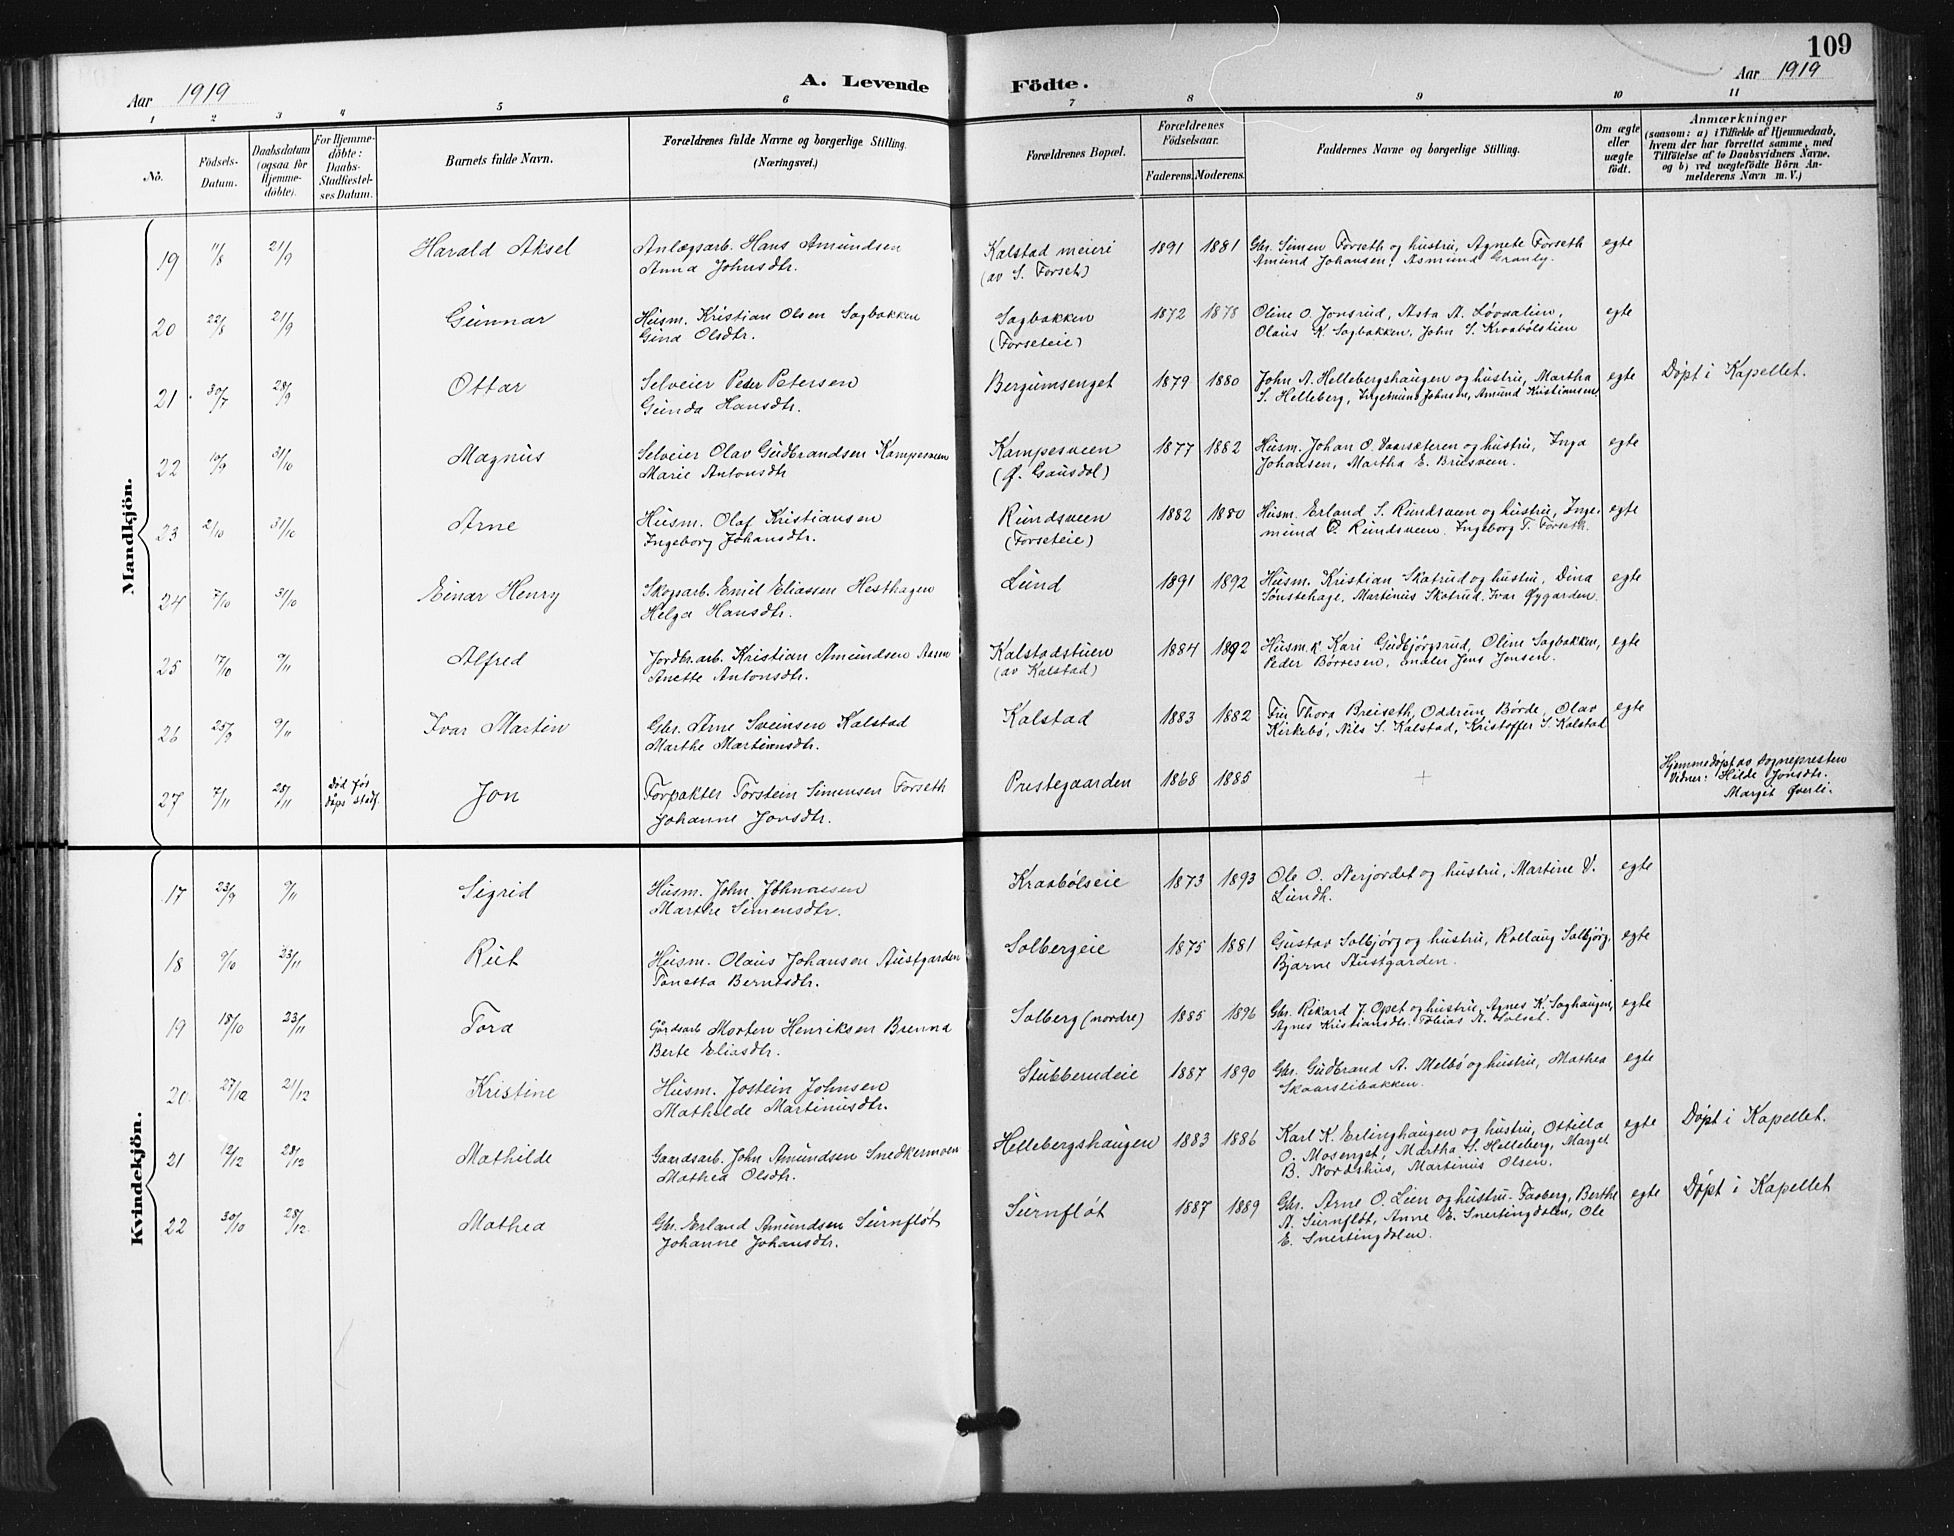 109
Aar 1919 A. Levende Födte. Aar 1919
1 2 3 4 5 6 7 8 9 10 11
No. Födsels-Datum. Daabsdatum (ogsaa for Hjemme-döbte). For Hjemme-döbte: Daabs-Stadfæstel-ses Datum. Barnets fulde Navn. Forældrenes fulde Navne og borgerlige Stilling. (Næringsvei.) Forældrenes Bopæl. Forældrenes Födselsaar. Faderens. Moderens. Faddernes Navne og borgerlige Stilling. Om ægte eller uægte födt. Anmærkninger (saasom: a) i Tilfælde af Hjemmedaab, hvem der har forrettet samme, med Tilföielse af to Daabsvidners Navne. og b) ved uægtefödte Börn An-melderens Navn m. V.)
Mandkjön.
19 11/8 21/9 Harald Aksel Anlægsarb. Hans Amundsen Kalstad meieri 1891 1881 Gbr. Simen Forseth og hustru, Agnete Forseth egte
Anna Johnsdtr. (av S. Forset) Amund Johansen, Asmund Granly.
20 22/8 21/9 Gunnar Husm. Kristian Olsen Sagbakken Sagbakken 1872 1878 Oline O. Jonsrud, Asta A. Løvdalien, egte
Gina Olsdtr. (Forseteie) Olaus K. Sagbakken, John S. Kraabølstien
21 30/7 28/9 Ottar Selveier Peder Petersen Bergumsenget 1879 1880 John A. Hellebergshaugen og hustru, Martha egte Døpt i Kapellet.
Gunda Hansdtr. S. Helleberg, Ingemund Johnsen, Amund Kristiansen
22 10/9 31/10 Magnus Selveier Olav Gudbrandsen Kampesveen Kampesveen 1877 1882 Husm. Johan O. Vaarsæteren og hustru, Inga egte
Marie Antonsdtr (Ø. Gausdal) Johansen, Martha E. Brusveen.
23 2/10 31/10 Arne Husm. Olaf Kristiansen Rundsveen 1882 1880 Husm. Erland S. Rundsveen og hustru, Inge- egte
Ingeborg Johansdtr. (Forseteie) mund O. Rundsveen. Ingeborg T. Forseth.
24 7/10 31/10 Einar Henry Skogsarb. Emil Eliassen Hesthagen Lund 1891 1892 Husm. Kristian Skatrud og hustru, Dina egte
Helga Hansdtr. Sønstehage, Martinus Skatrud, Ivar Øygarden.
25 17/10 9/11 Alfred Jordbr.arb. Kristian Amundsen Aasen Kalstadstuen 1884 1892 Husm.k. Kari Gudbjørgsrud, Oline Sagbakken, egte
Anette Antonsdtr. (av Kalstad) Peder Børvesen, maler Jens Jensen.
26 25/9 9/11 Ivar Martin Gbr. Arne Sveinsen Kalstad Kalstad 1883 1882 Fru Thora Breiseth, Oddrun Børde, Olav egte
Marthe Martinusdtr. Kirkebø, Nils S. Kalstad, Kristoffer S. Kalstad
27 7/11 28/11 Død før dåps stadf. Jon Forpakter Torstein Simensen Forseth Prestegaarden 1868 1885 + Hjemmedøpt av sognepresten
Johanne Jonsdtr. Vidner: Hilde Jonsdtr.
Marget Øverli.
Kvindekjön.
17 23/9 9/11 Sigrid Husm. John Johnassen Kraabølseie 1873 1893 Ole O. Nerjordet og hustru, Martine V. egte
Marthe Simensdtr. Lundh.
18 9/10 23/11 Rut Husm. Olaus Johansen Austgarden Solbergeie 1875 1881 Gustav Solbjørg og hustru, Rollaug Solbjørg, egte
Tonetta Berntsdtr. Bjarne Austgarden.
19 18/10 23/11 Tora Gårdsarb Morten Henriksen Brenna Solberg (nordre) 1885 1896 Gbr. Rikard J. Opet og hustru, Agnes K. Saghaugen, egte
Berte Eliasdtr. Agnes Kristiansdtr. Tobias A. Holset.
20 27/10 21/12 Kristine Husm. Jostein Johnsen Stubberudeie 1887 1890 Gbr. Gudbrand A. Melbø og hustru, Mathea egte
Mathilde Martinusdtr. Skaarslibakken.
21 12/12 28/12 Mathilde Gaardsarb. John Amundsen Snedkermoen Hellebergshaugen 1883 1886 Karl K. Erlinghaugen og hustru, Ottilia egte Døpt i Kapellet.
Mathea Olsdtr. O. Mosenget, Martha S. Helleberg, Marget
B. Nordshus, Martinus Olsen.
22 30/10 28/12 Mathea Gbr. Erland Amundsen Surnfløt Surnfløt 1887 1889 Gbr. Arne O. Lien og hustru - Faaberg, Berthe egte Døpt i Kapellet
Johanne Johansdtr. A. Surnfløt, Anne E. Snertingdalen, Ole
E. Snertingdalen.